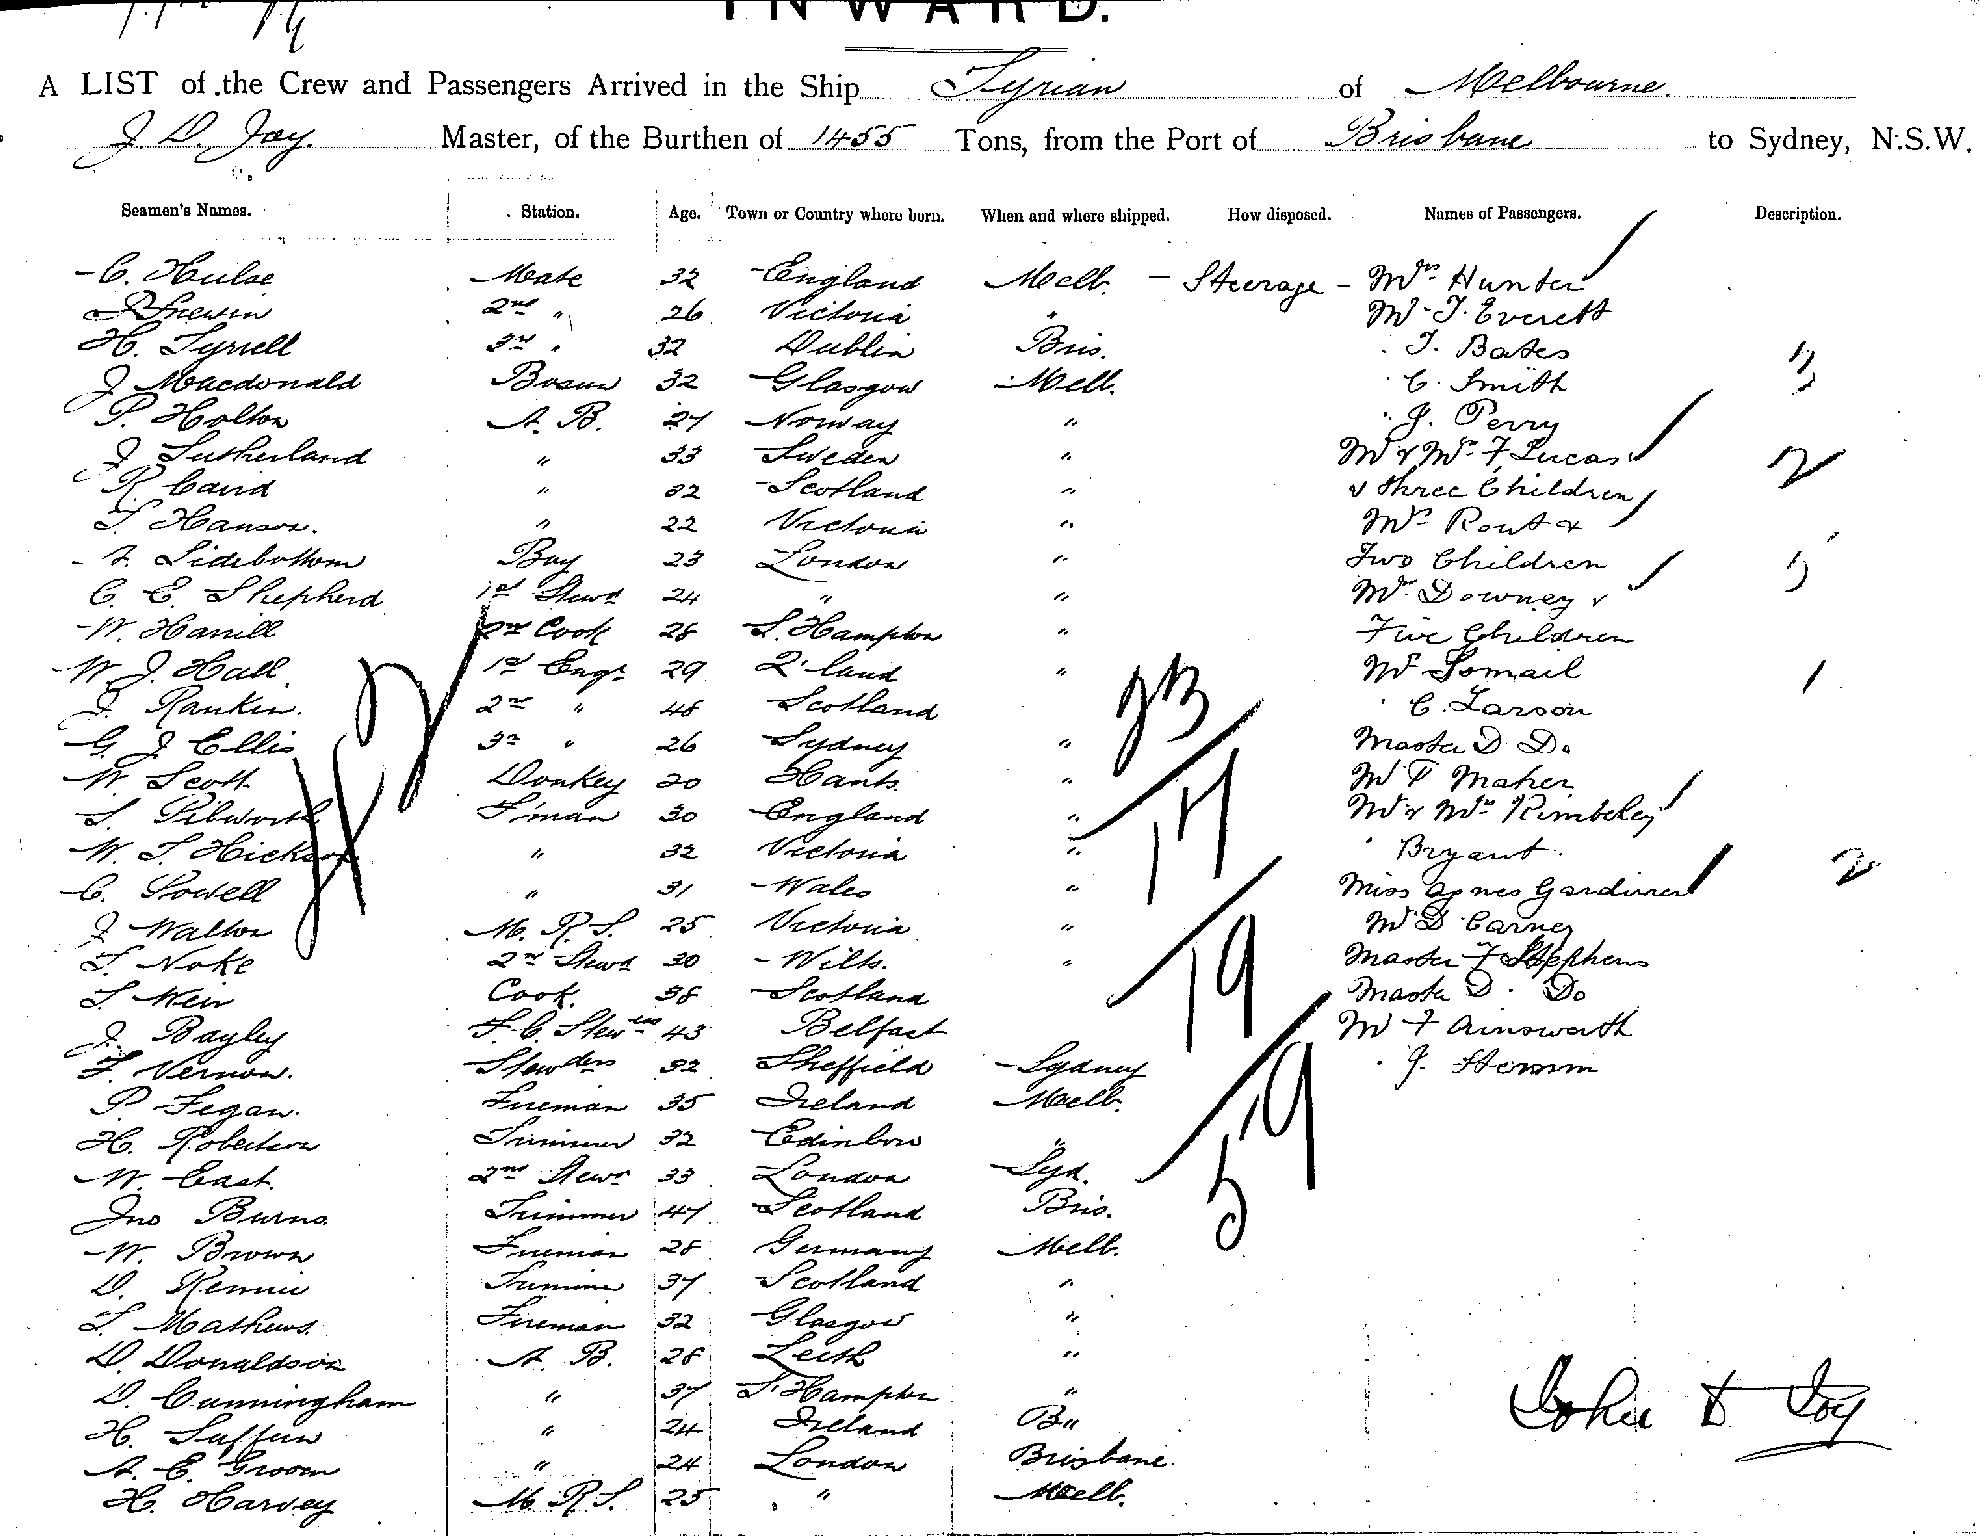 INWARD.
A LIST of the Crew and Passengers Arrived in the Ship Syrian of Melbourne.
J. D. Joy. Master, of the Burthen of 1455 Tons, from the Port of Brisbane to Sydney, N.S.W.
Seamen's Names. Station. Age. Town or Country where born. When and where shipped. How disposed. Names of Passengers. Description.
C. Hulse Mate 32 England Melb. - Steerage - Mrs Hunter
2nd " 26 Victoria " Mr T. Everett
H. Tyrrell 3rd " 32 Dublin Bris. T. Bates
J Macdonald Bosun 32 Glasgow Melb. C. Smith
P. Holton A. B. 27 Norway " J. Perry
J Sutherland " 33 Sweden " Mr & Mrs F Lucas 2
R Caird " 32 Scotland " & three Children
T. Hanson. " 22 Victoria " Mrs Rout &
Sidebottom Boy 23 London " Two Children
C. E. Shepherd 1st Stewd 24 " " Mrs Downey &
W. Harill 2nd Cook 28 S. Hampton " Five Children
W. J. Hall 1st Engr 29 Q'land " Mr Somail 1
J. Rankin. 2nd " 48 Scotland C. Larson
G. J Ellis 3rd " 26 Sydney " Master D Do
W. Scott Donkey 20 Hants. " Mr P Maher
S. Pilworth F'man 30 England " Mr & Mrs Kimberley
W. T. Hickson " 32 Victoria " Bryant
C. Sowell " 31 Wales " Miss Agnes Gardiner 2
J Walton M. R. S. 25 Victoria " Mr D Carney
T. Noke 2nd Stewd 30 Wilts. " Master F Stephens
T. Weir Cook. 38 Scotland Master D. Do
J. Bayley F. C. Stewdess 43 Belfast Mr F Ainsworth
F. Vernon. Stewdess 32 Sheffield Sydney J. Stemm
P. Fegan. Fireman 35 Ireland Melb.
H. Robertson Trimmer 32 Edinboro "
W. East. 2nd Stewd 33 London Syd.
Jno Burns Trimmer 47 Scotland Bris.
W. Brown Fireman 28 Germany Melb.
D. Rennie Trimmer 37 Scotland "
T. Mathews. Fireman 32 Glasgow "
D. Donaldson A. B. 28 Leith "
D. Cunningham " 37 S. Hampton "
H. Suffern " 24 Ireland
A. E. Groom " 24 London Brisbane
H. Harvey M. R. S. 25 " Melb.
23
17
19
59
John D Joy